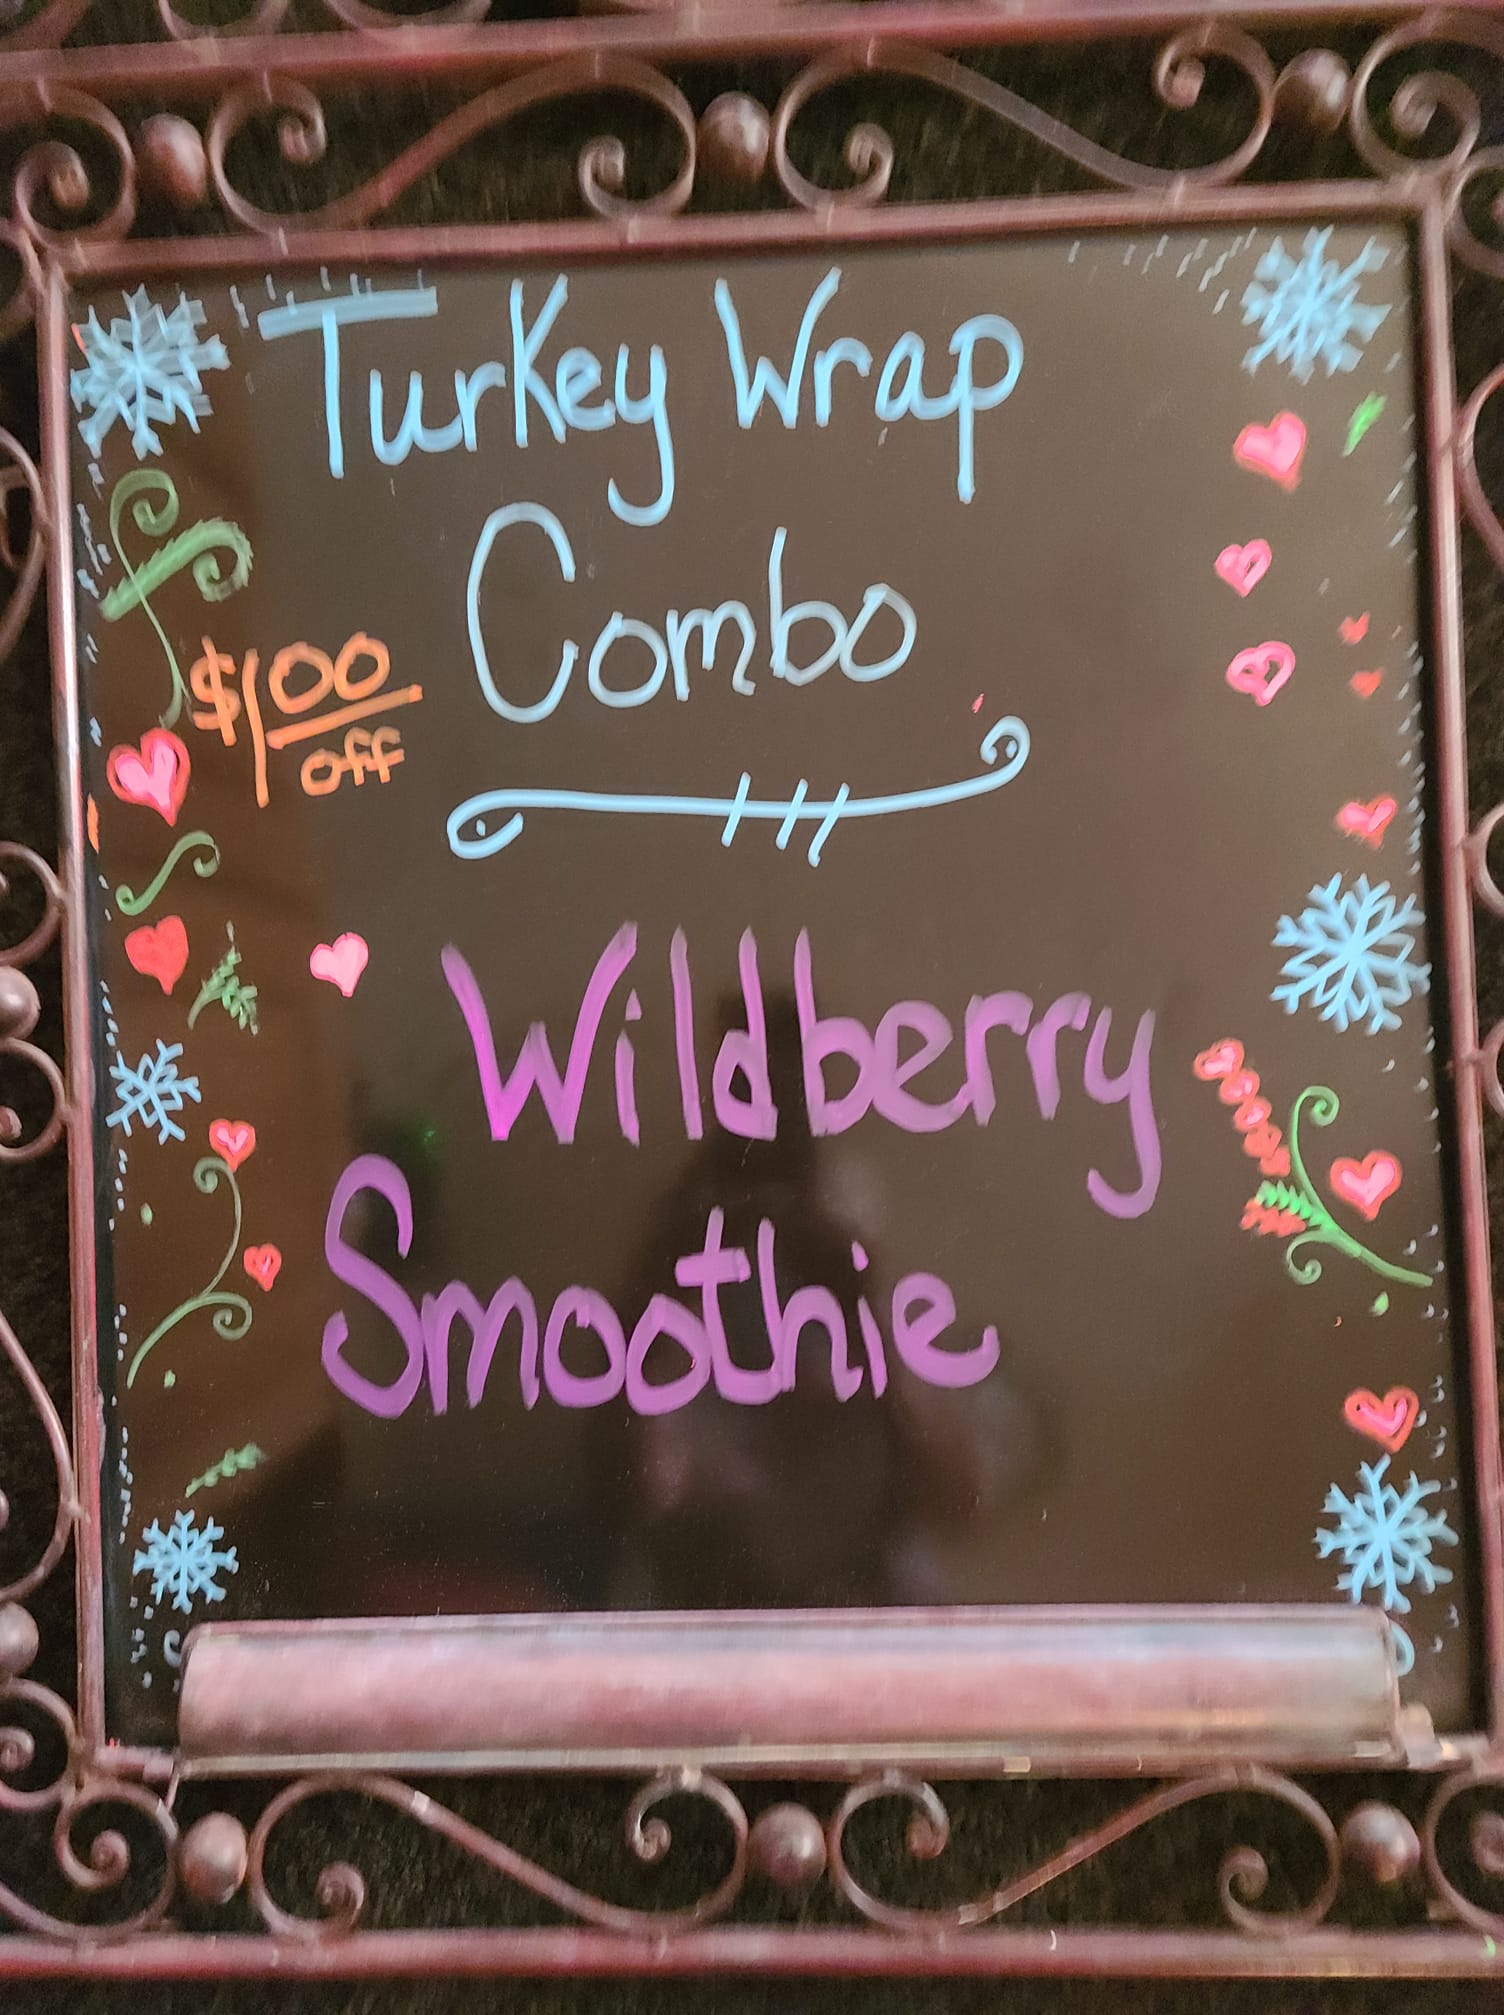 Turkey Wrap
Combo
$1.00
off
Wildberry
Smoothie